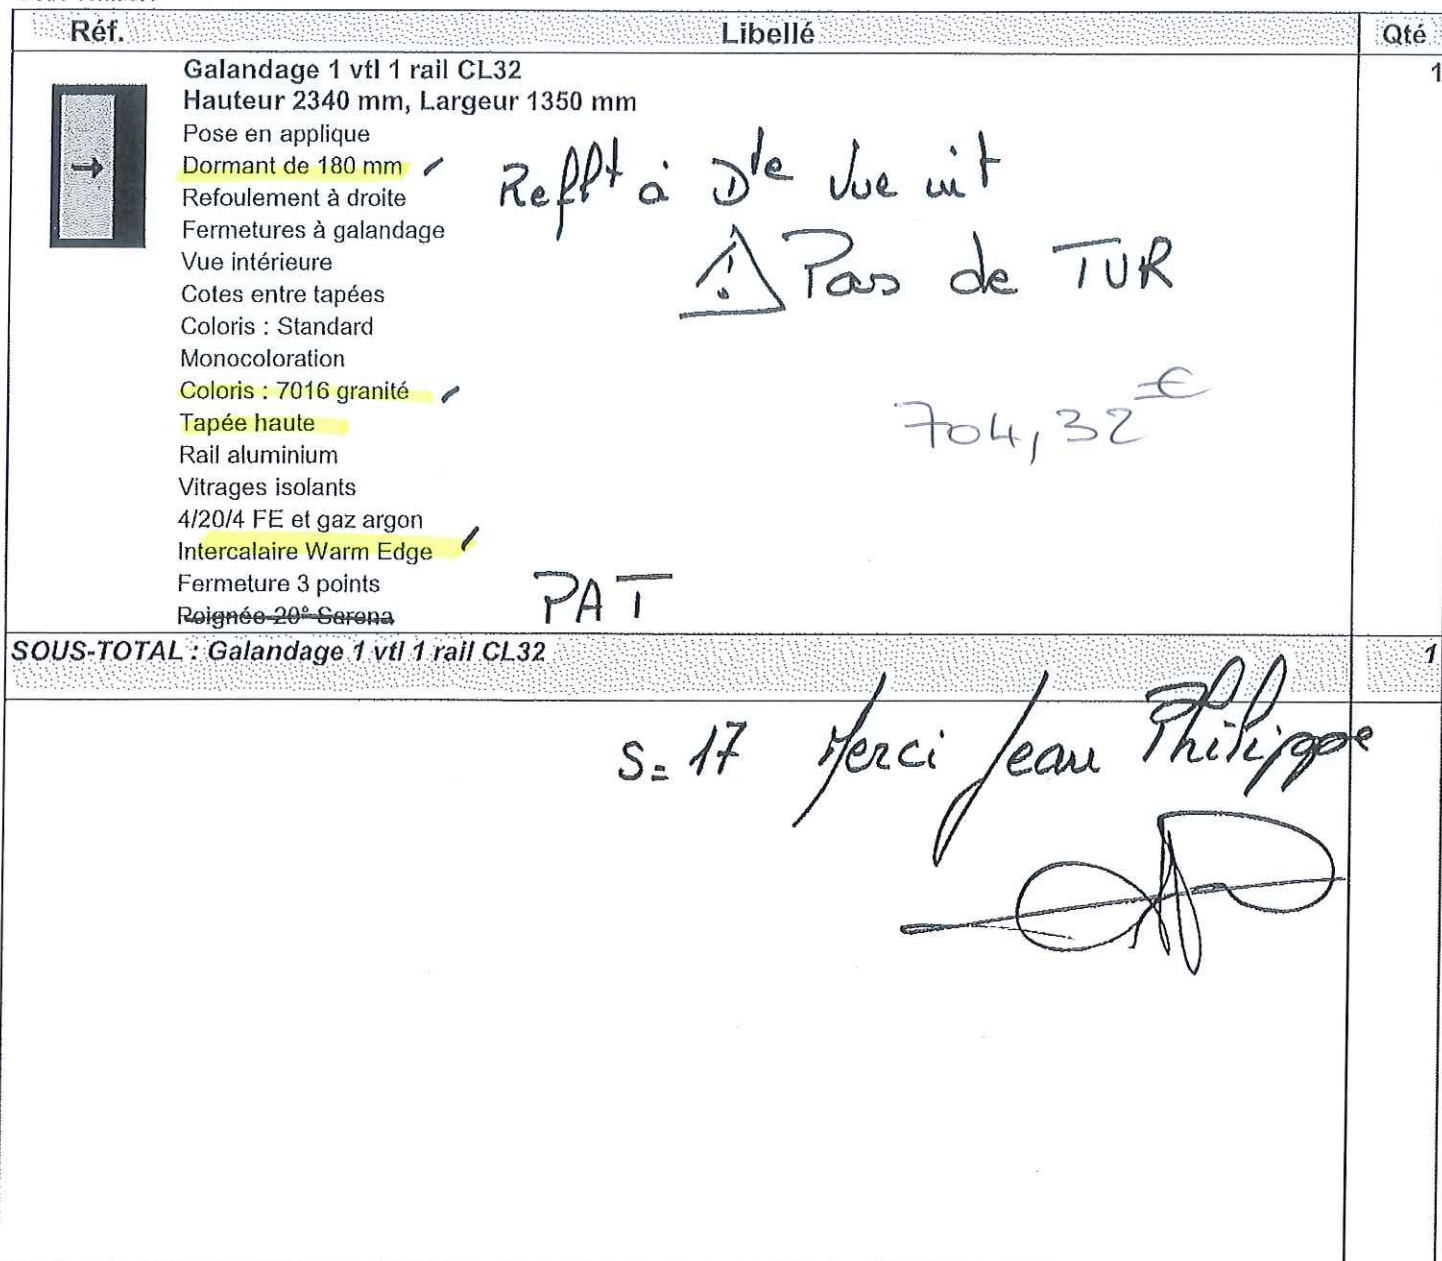 Réf. Libellé Qté
Galandage 1 vtl 1 rail CL32 1
Hauteur 2340 mm, Largeur 1350 mm
Pose en applique
Dormant de 180 mm
Refflt à Dte Vue int
Refoulement à droite
Fermetures à galandage
Vue intérieure
⚠ Pas de TUR
Cotes entre tapées
Coloris : Standard
Monocoloration
Coloris : 7016 granité
704,32 €
Tapée haute
Rail aluminium
Vitrages isolants
4/20/4 FE et gaz argon
Intercalaire Warm Edge
Fermeture 3 points
PAT
Poignée 20° Sarena
SOUS-TOTAL : Galandage 1 vtl 1 rail CL32 1
S= 17 Merci Jean Philippe